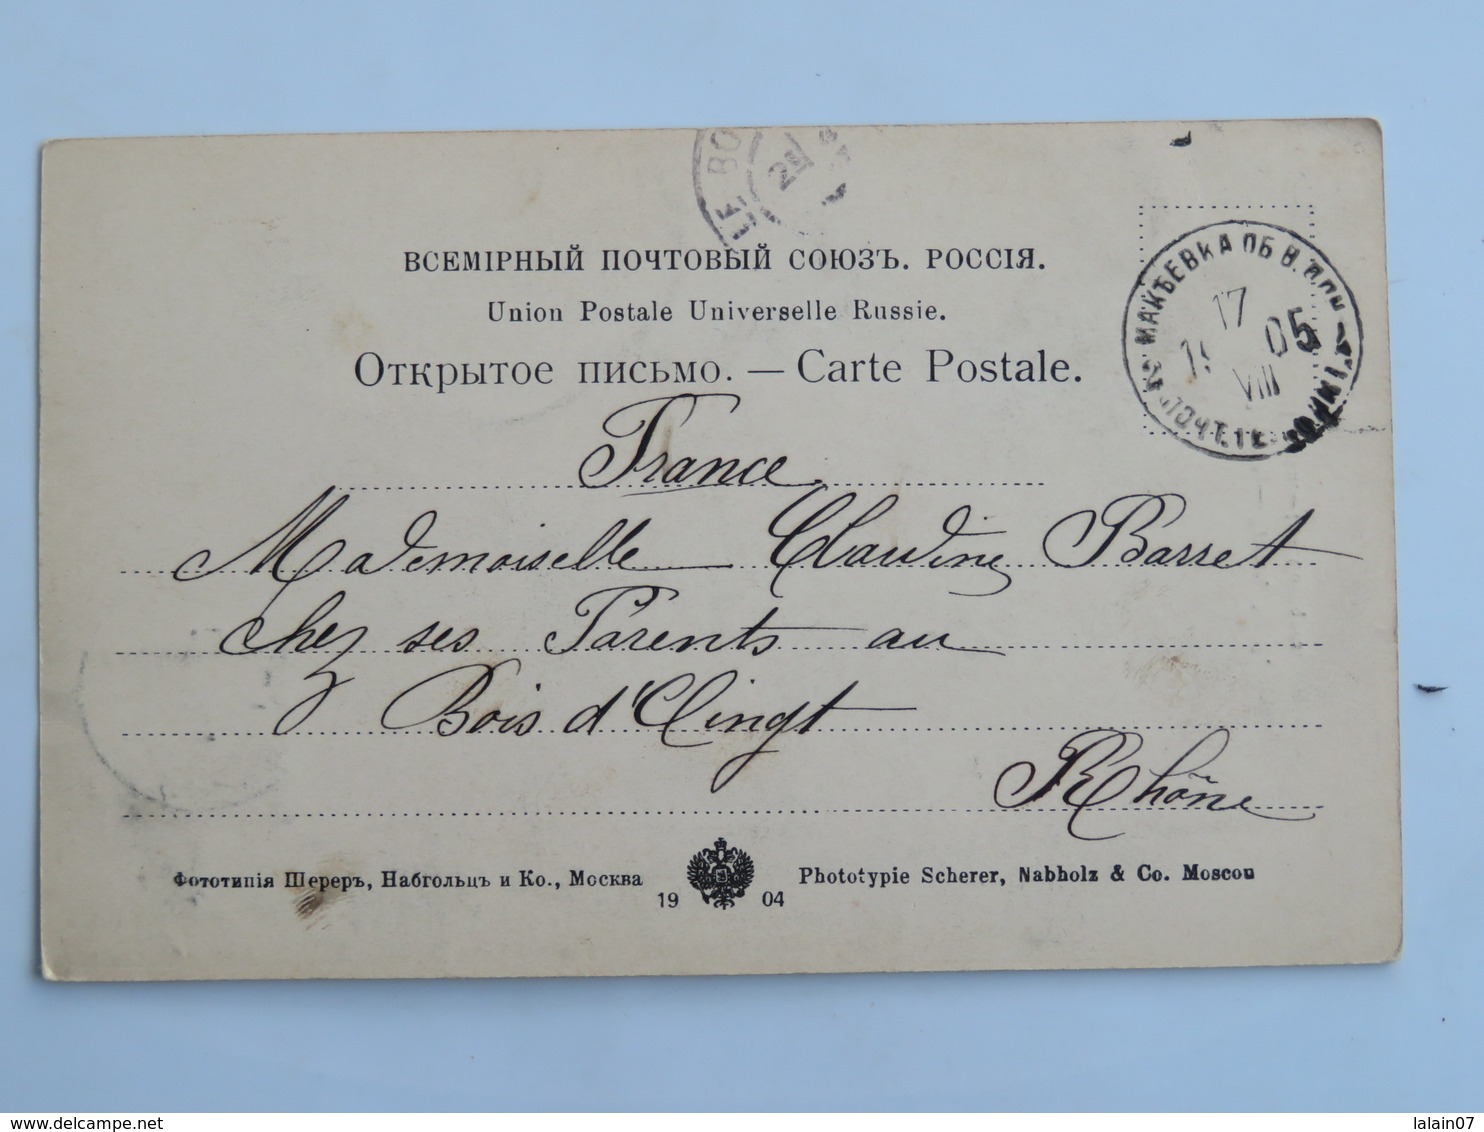 LE BO
ВСЕМІРНЫЙ ПОЧТОВЫЙ СОЮЗЪ. РОССІЯ.
Union Postale Universelle Russie.
Открытое письмо. — Carte Postale.
МАКѢЕВКА ОБ. В. ДОН.
17
05
VIII
France
Mademoiselle Claudine Barret
chez ses Parents au
Bois d'Oingt
Rhône
Фототипія Шереръ, Набгольцъ и Ко., Москва
19 04
Phototypie Scherer, Nabholz & Co. Moscou
delcampe.net
lalain07